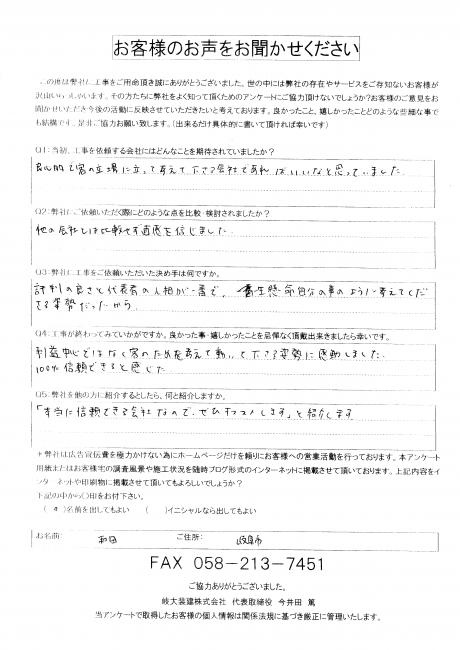 お客様のお声をお聞かせください
この度は弊社に工事をご用命頂き誠にありがとうございました。世の中には弊社の存在やサービスをご存知ないお客様が
沢山いらっしゃいます。その方たちに弊社をよく知って頂くためのアンケートにご協力頂けないでしょうか?お客様のご意見をお
聞かせいただき今後の活動に反映させていただきたいと考えております。良かったこと、嬉しかったことどのような些細な事で
も結構です。是非ご協力お願い致します。(出来るだけ具体的に書いて頂ければ幸いです)
Q1:当初、工事を依頼する会社にはどんなことを期待されていましたか?
良心的で客の立場に立って考えて下さる会社であればいいなと思っていました
Q2:弊社にご依頼いただく際にどのような点を比較・検討されましたか?
他の会社とは比較せず直感を信じました
Q3:弊社に工事をご依頼いただいた決め手は何ですか。
評判の良さと代表者の人相が一番で、一生懸命自分の事のように考えてくだ
さる姿勢だったから
Q4:工事が終わってみていかがですか。良かった事・嬉しかったことを忌憚なく頂戴出来きましたら幸いです。
利益中心ではなく客のためを考えて動いて下さる姿勢に感動しました。
100%信頼できると感じた
Q5:弊社を他の方に紹介するとしたら、何と紹介しますか。
「本当に信頼できる会社なので、ぜひオススメします」と紹介します
+弊社は広告宣伝費を極力かけない為にホームページだけを頼りにお客様への営業活動を行っております。本アンケート
用紙またはお客様宅の調査風景や施工状況を随時ブログ形式のインターネットに掲載させて頂いております。上記内容をイ
ンターネットや印刷物に掲載させて頂いてもよろしいでしょうか?
下記の中から○印をお付下さい。
( )名前を出してもよい ( )イニシャルなら出してもよい
お名前: 和田 ご住所: 岐阜市
FAX 058-213-7451
ご協力ありがとうございました。
岐大装建株式会社 代表取締役 今井田 篤
当アンケートで取得したお客様の個人情報は関係法規に基づき厳正に管理いたします。